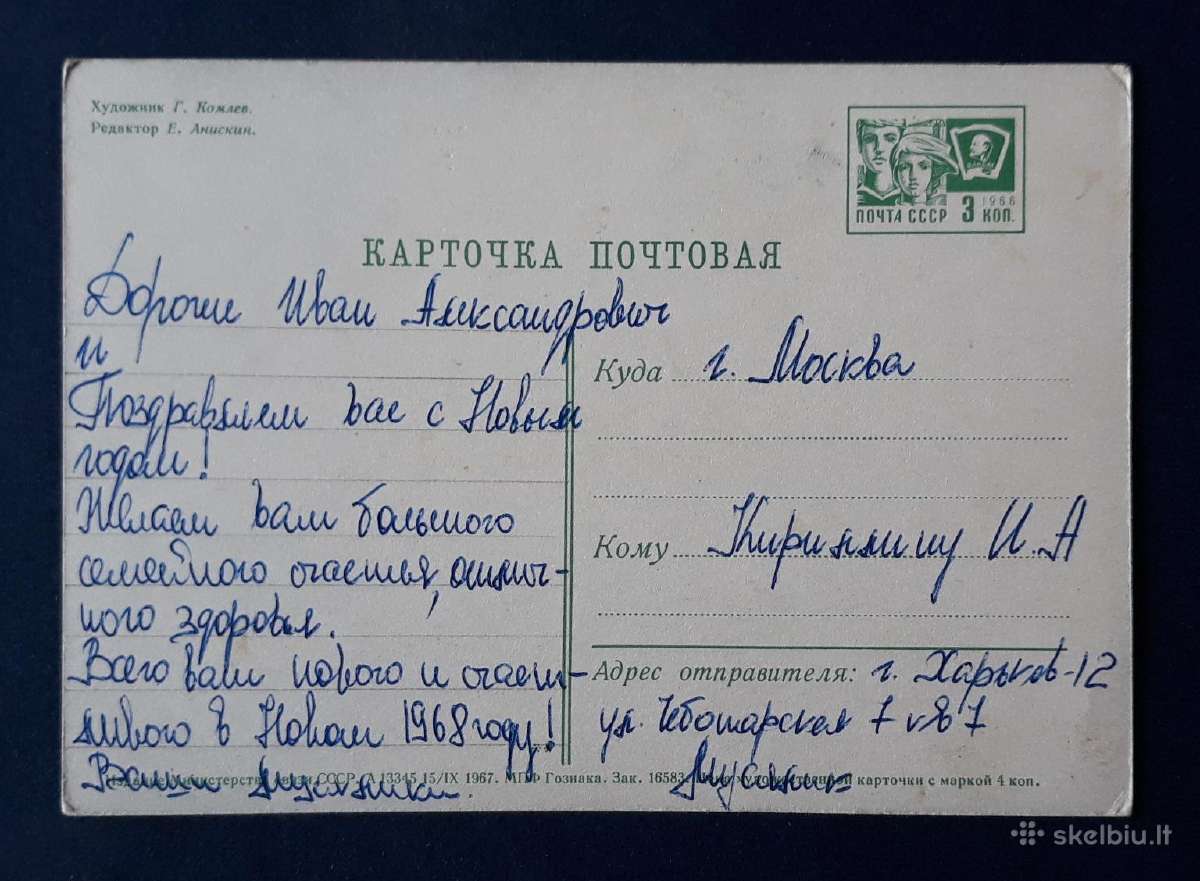 Художник Г. Комлев.
Редактор Е. Анискин.
1966
ПОЧТА СССР 3 КОП.
КАРТОЧКА ПОЧТОВАЯ
Дорогие Иван Александрович
и
Поздравляем Вас с Новым
годом!
Желаем Вам большого
семейного счастья, отлич-
ного здоровья.
Всего вам нового и счаст-
ливого в Новом 1968 году!
Ваши
Куда г. Москва
Кому И. А
Адрес отправителя: г. Харьков-12
ул. Чеботарская 7 кв 7
Издание Министерства связи СССР. А 13345 15/IX 1967. МПФ Гознака. Зак. 16583. художественной карточки с маркой 4 коп.
skelbiu.lt